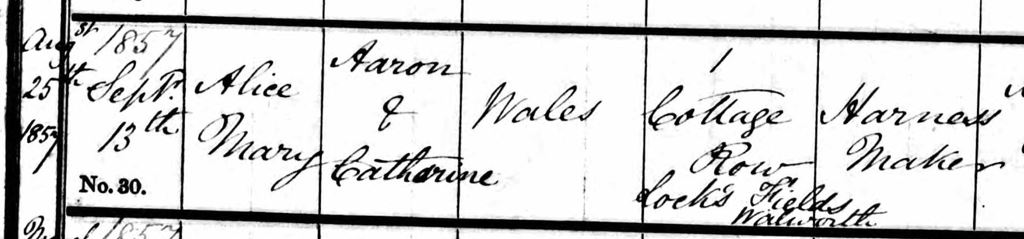 Augst
25th
1857
1857
Septr.
13th
No. 30.
Alice
Mary
Aaron
&
Catherine
Wales
1
Cottage
Row
Lock's Fields
Walworth
Harness
Maker
1857